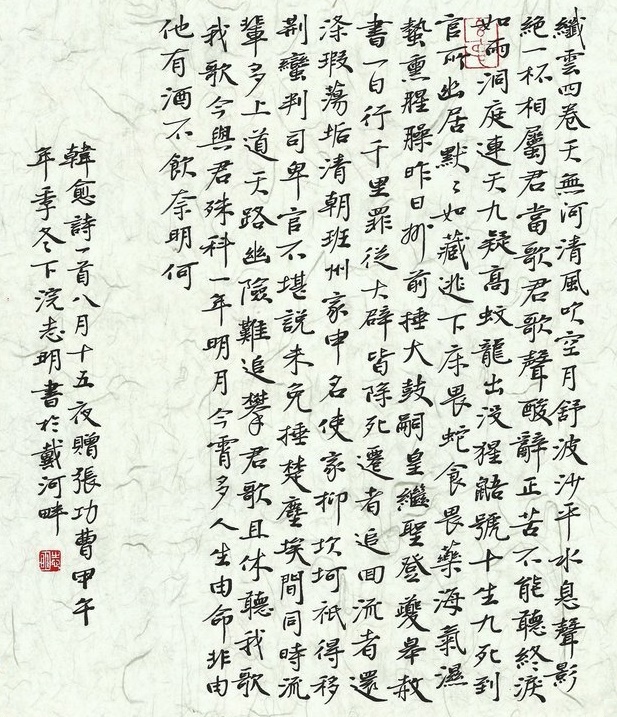 纖雲四卷天無河清風吹空月舒波沙平水息聲影
絕一杯相屬君當歌君歌聲酸辭正苦不能聽終淚
如雨洞庭連天九疑高蛟龍出沒猩鼯號十生九死到
官所幽居默〻如藏逃下床畏蛇食畏藥海氣濕
蟄熏腥臊昨日州前捶大鼓嗣皇繼聖登夔皋赦
書一日行千里罪從大辟皆除死遷者追囬流者還
滌瑕蕩垢清朝班州家申名使家抑坎坷祇得移
荊蠻判司卑官不堪說未免捶楚塵埃間同時流
輩多上道天路幽險難追攀君歌且休聽我歌
我歌今與君殊科一年明月今宵多人生由命非由
他有酒不飲奈明何
韓愈詩一首八月十五夜贈張功曹甲午
年季冬下浣志明書於戴河畔
志明